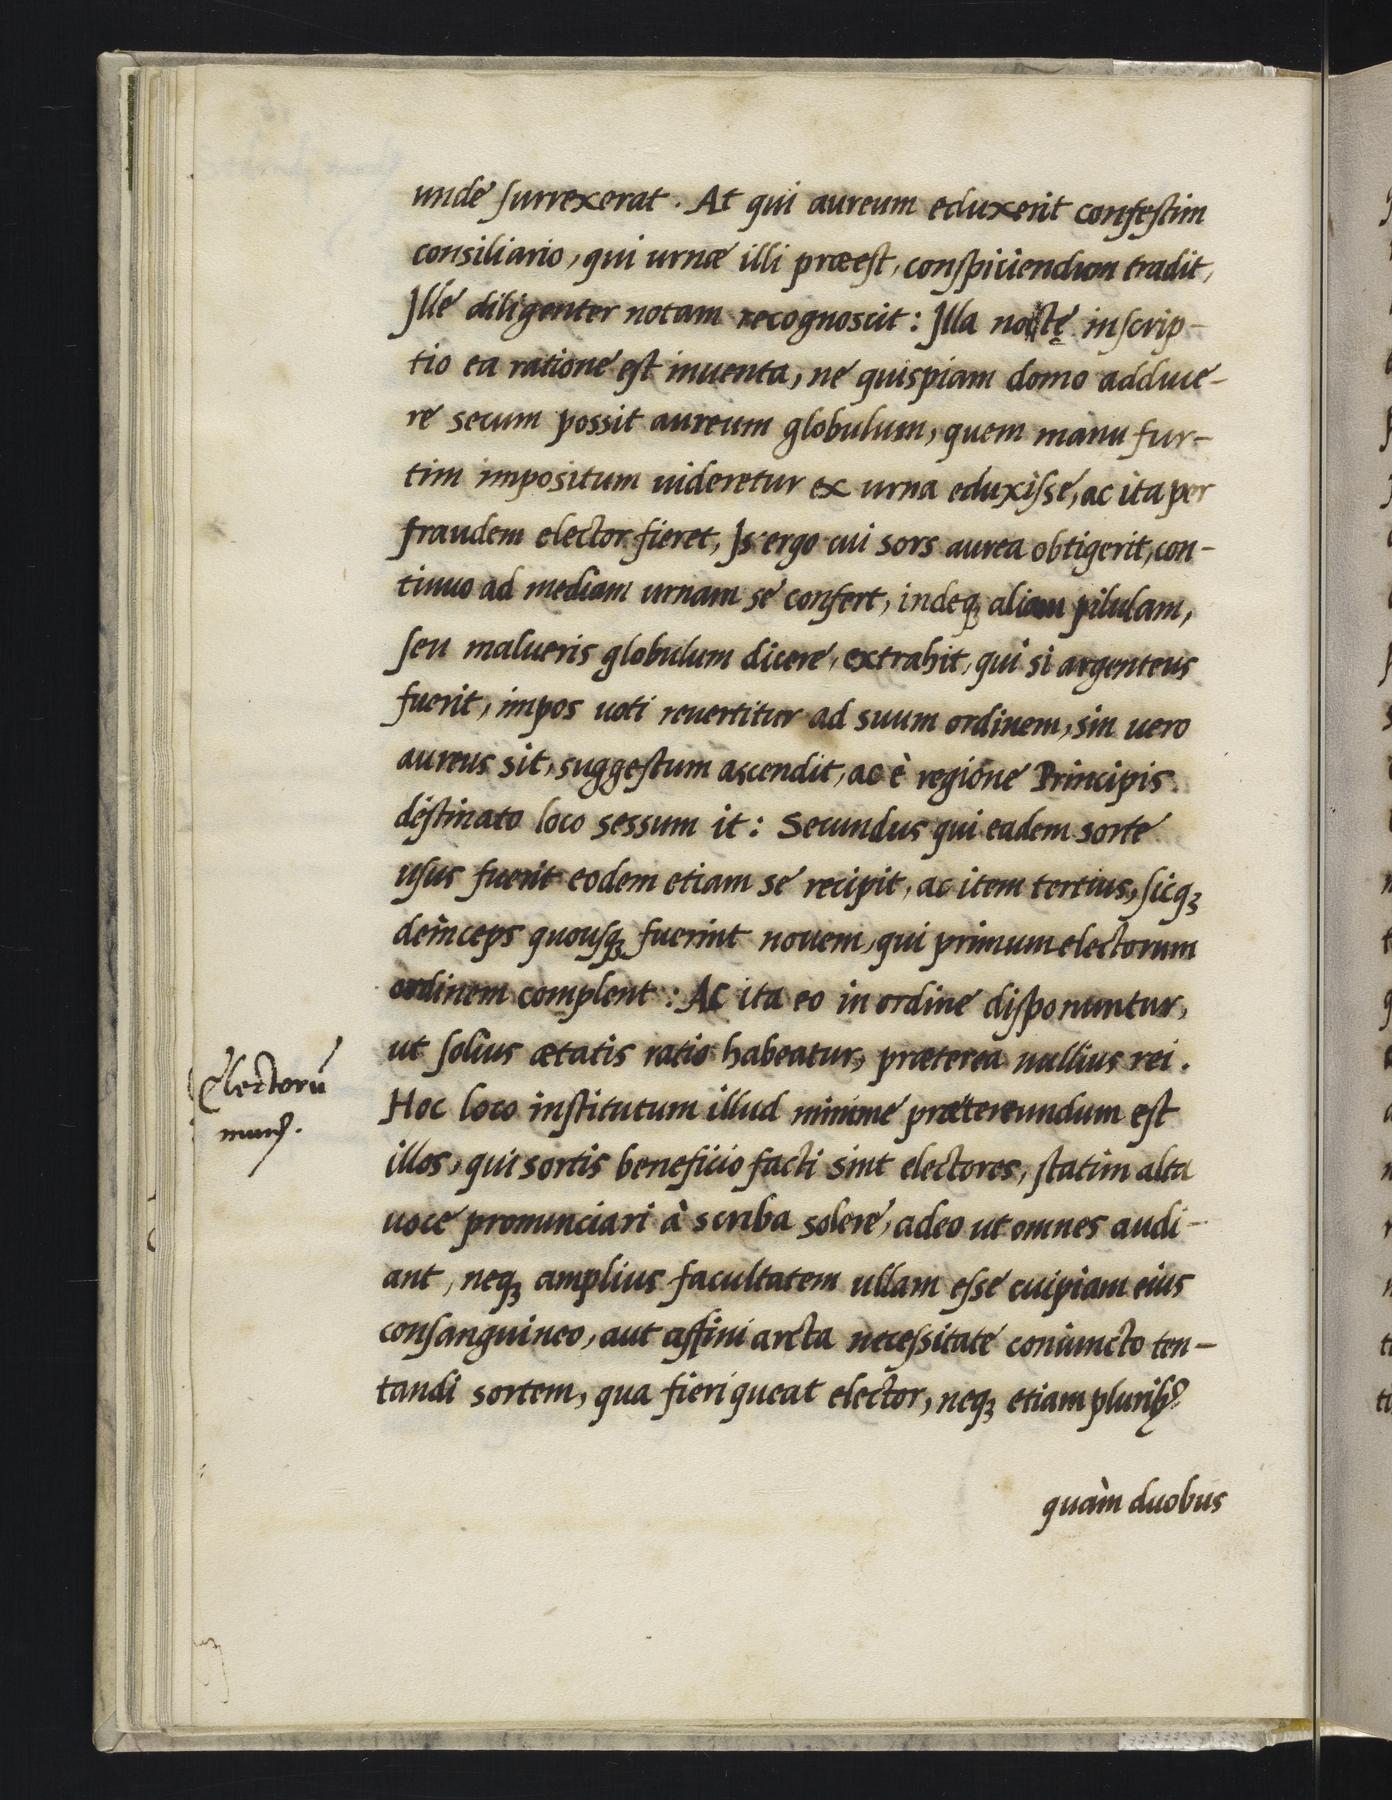 unde surrexerat. At qui aureum eduxerit confestim
consiliario, qui urnæ illi præest, conspiciendum tradit,
Jlle diligenter notam recognoscit: Jlla inscrip-
tio ea ratione est inuenta, ne quispiam domo adduce-
re secum possit aureum globulum, quem manu fur-
tim impositum uideretur ex urna eduxisse, ac ita per
fraudem elector fieret, Js ergo cui sors aurea obtigerit, con-
tinuo ad mediam urnam se confert, indeqꝫ aliam pilulam,
seu malueris globulum dicere, extrahit, qui si argenteus
fuerit, impos uoti reuertitur ad suum ordinem, sin uero
aureus sit, suggestum ascendit, ac è regione Principis
destinato loco sessum it: Secundus qui eadem sorte
usus fuerit eodem etiam se recipit, ac item tertius, sicqꝫ
deinceps quousqꝫ fuerint nouem, qui primum electorum
ordinem complent: Ac ita eo in ordine disponuntur,
ut solius ætatis ratio habeatur, præterea nullius rei.
Electorū
Hoc loco institutum illud minime prætereundum est
illos, qui sortis beneficio facti sint electores, statim alta
uoce pronunciari à scriba solere, adeo ut omnes audi-
ant, neqꝫ amplius facultatem ullam esse cuipiam eius
consanguineo, aut affini arcta necessitate coniuncto ten-
tandi sortem, qua fieri queat elector, neqꝫ etiam pluribꝰ
quàm duobus